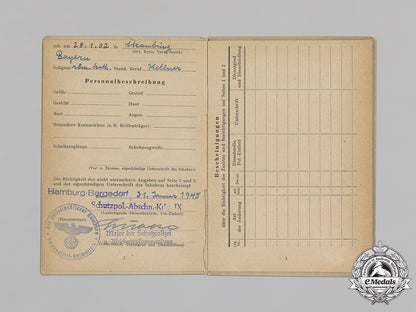 geb. am 28.1.02 in Straubing
Bayern
Religion röm. kath. Stand, Beruf Kellner
Personalbeschreibung
Größe Gestalt
Gesicht Haar
Bart Augen
Besondere Kennzeichen (z. B. Brillenträger):
Schuhzeuglänge Schuhzeugweite
(Vor- u. Zuname, eigenhändige Unterschrift des Inhabers)
Die Richtigkeit der nicht umrandeten Angaben auf Seite 1 und 2
und der eigenhändigen Unterschrift des Inhabers bescheinigt
Hamburg-Bergedorf, 31. Januar 1945
Schutzpol.-Abschn.-Kdo. IX
Major der Schutzpolizei
2
Bescheinigungen
über die Richtigkeit der Zusätze und Berichtigungen auf Seiten 1 und 2
Lfd. Nr.
Art der Änderung
Datum
Dienststelle, Pol. Einheit
Unterschrift
Dienstgrad und Dienststellung
3
eMedals